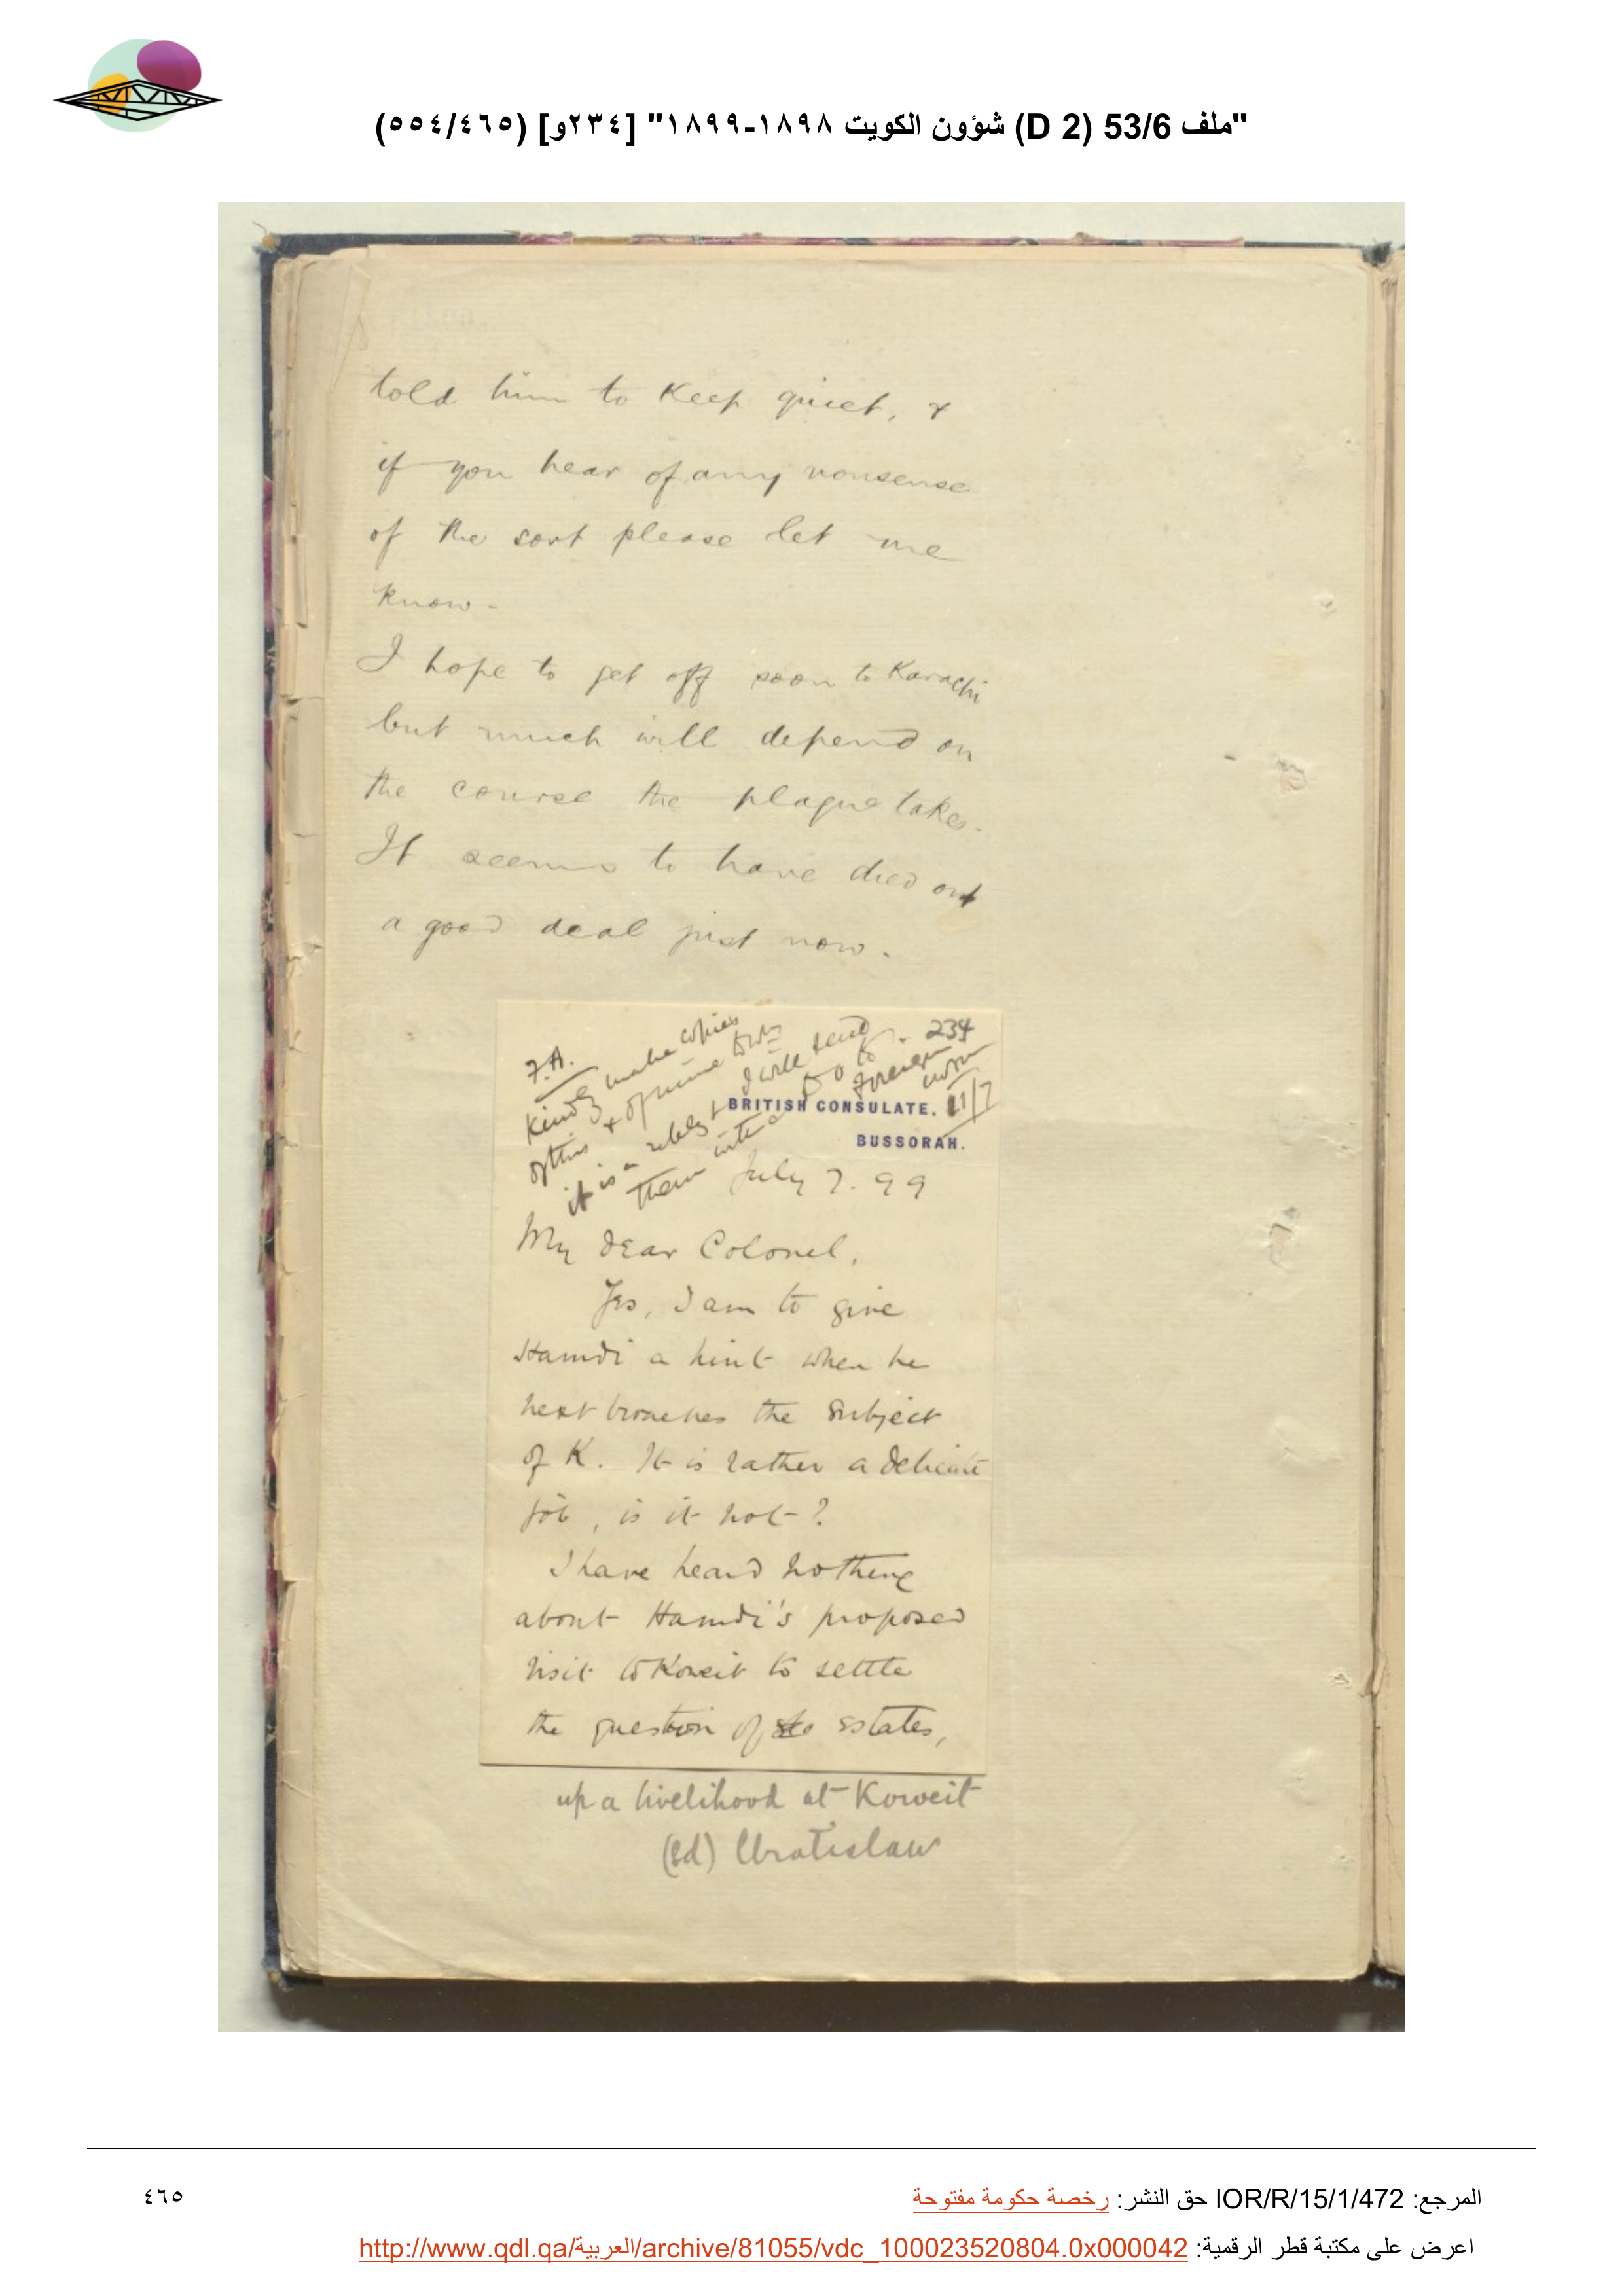 "ملف 53/6 (D 2) شؤون الكويت ١٨٩٨-١٨٩٩" [٢٣٤و] (٤٦٥/٥٥٤)
told him to Keep quiet, &
if you hear of any nonsense
of the sort please let me
know -
I hope to get off soon to Karachi
but much will depend on
the course the plague takes.
It seems to have died out
a good deal just now.
234
F.A.
Kindly make copies
of this &
it is a I will send
them into
Foreign
11/7
BRITISH CONSULATE.
BUSSORAH.
July 7. 99
My dear Colonel,
Yes, I am to give
Hamdi a hint when he
next broaches the subject
of K. It is rather a delicate
job, is it not?
I have heard nothing
about Hamdi's proposed
visit to Koweit to settle
the question of estates,
up a livelihood at Koweit
(Sd) Wratislaw
المرجع: IOR/R/15/1/472 حق النشر: رخصة حكومة مفتوحة
٤٦٥
اعرض على مكتبة قطر الرقمية: http://www.qdl.qa/العربية/archive/81055/vdc_100023520804.0x000042